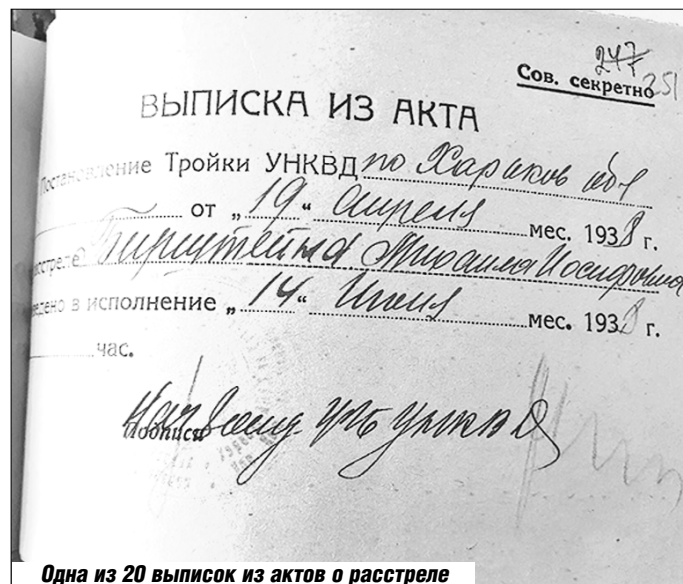 247
251
Сов. секретно
ВЫПИСКА ИЗ АКТА
Постановление Тройки УНКВД по Харьков обл
от „19“ апреля мес. 1938 г.
расстреле Бирштейна Михаила Иосифовича
ведено в исполнение „14“ Июня мес. 1938 г.
час.
Подписи
УГБ УНКВД
Одна из 20 выписок из актов о расстреле